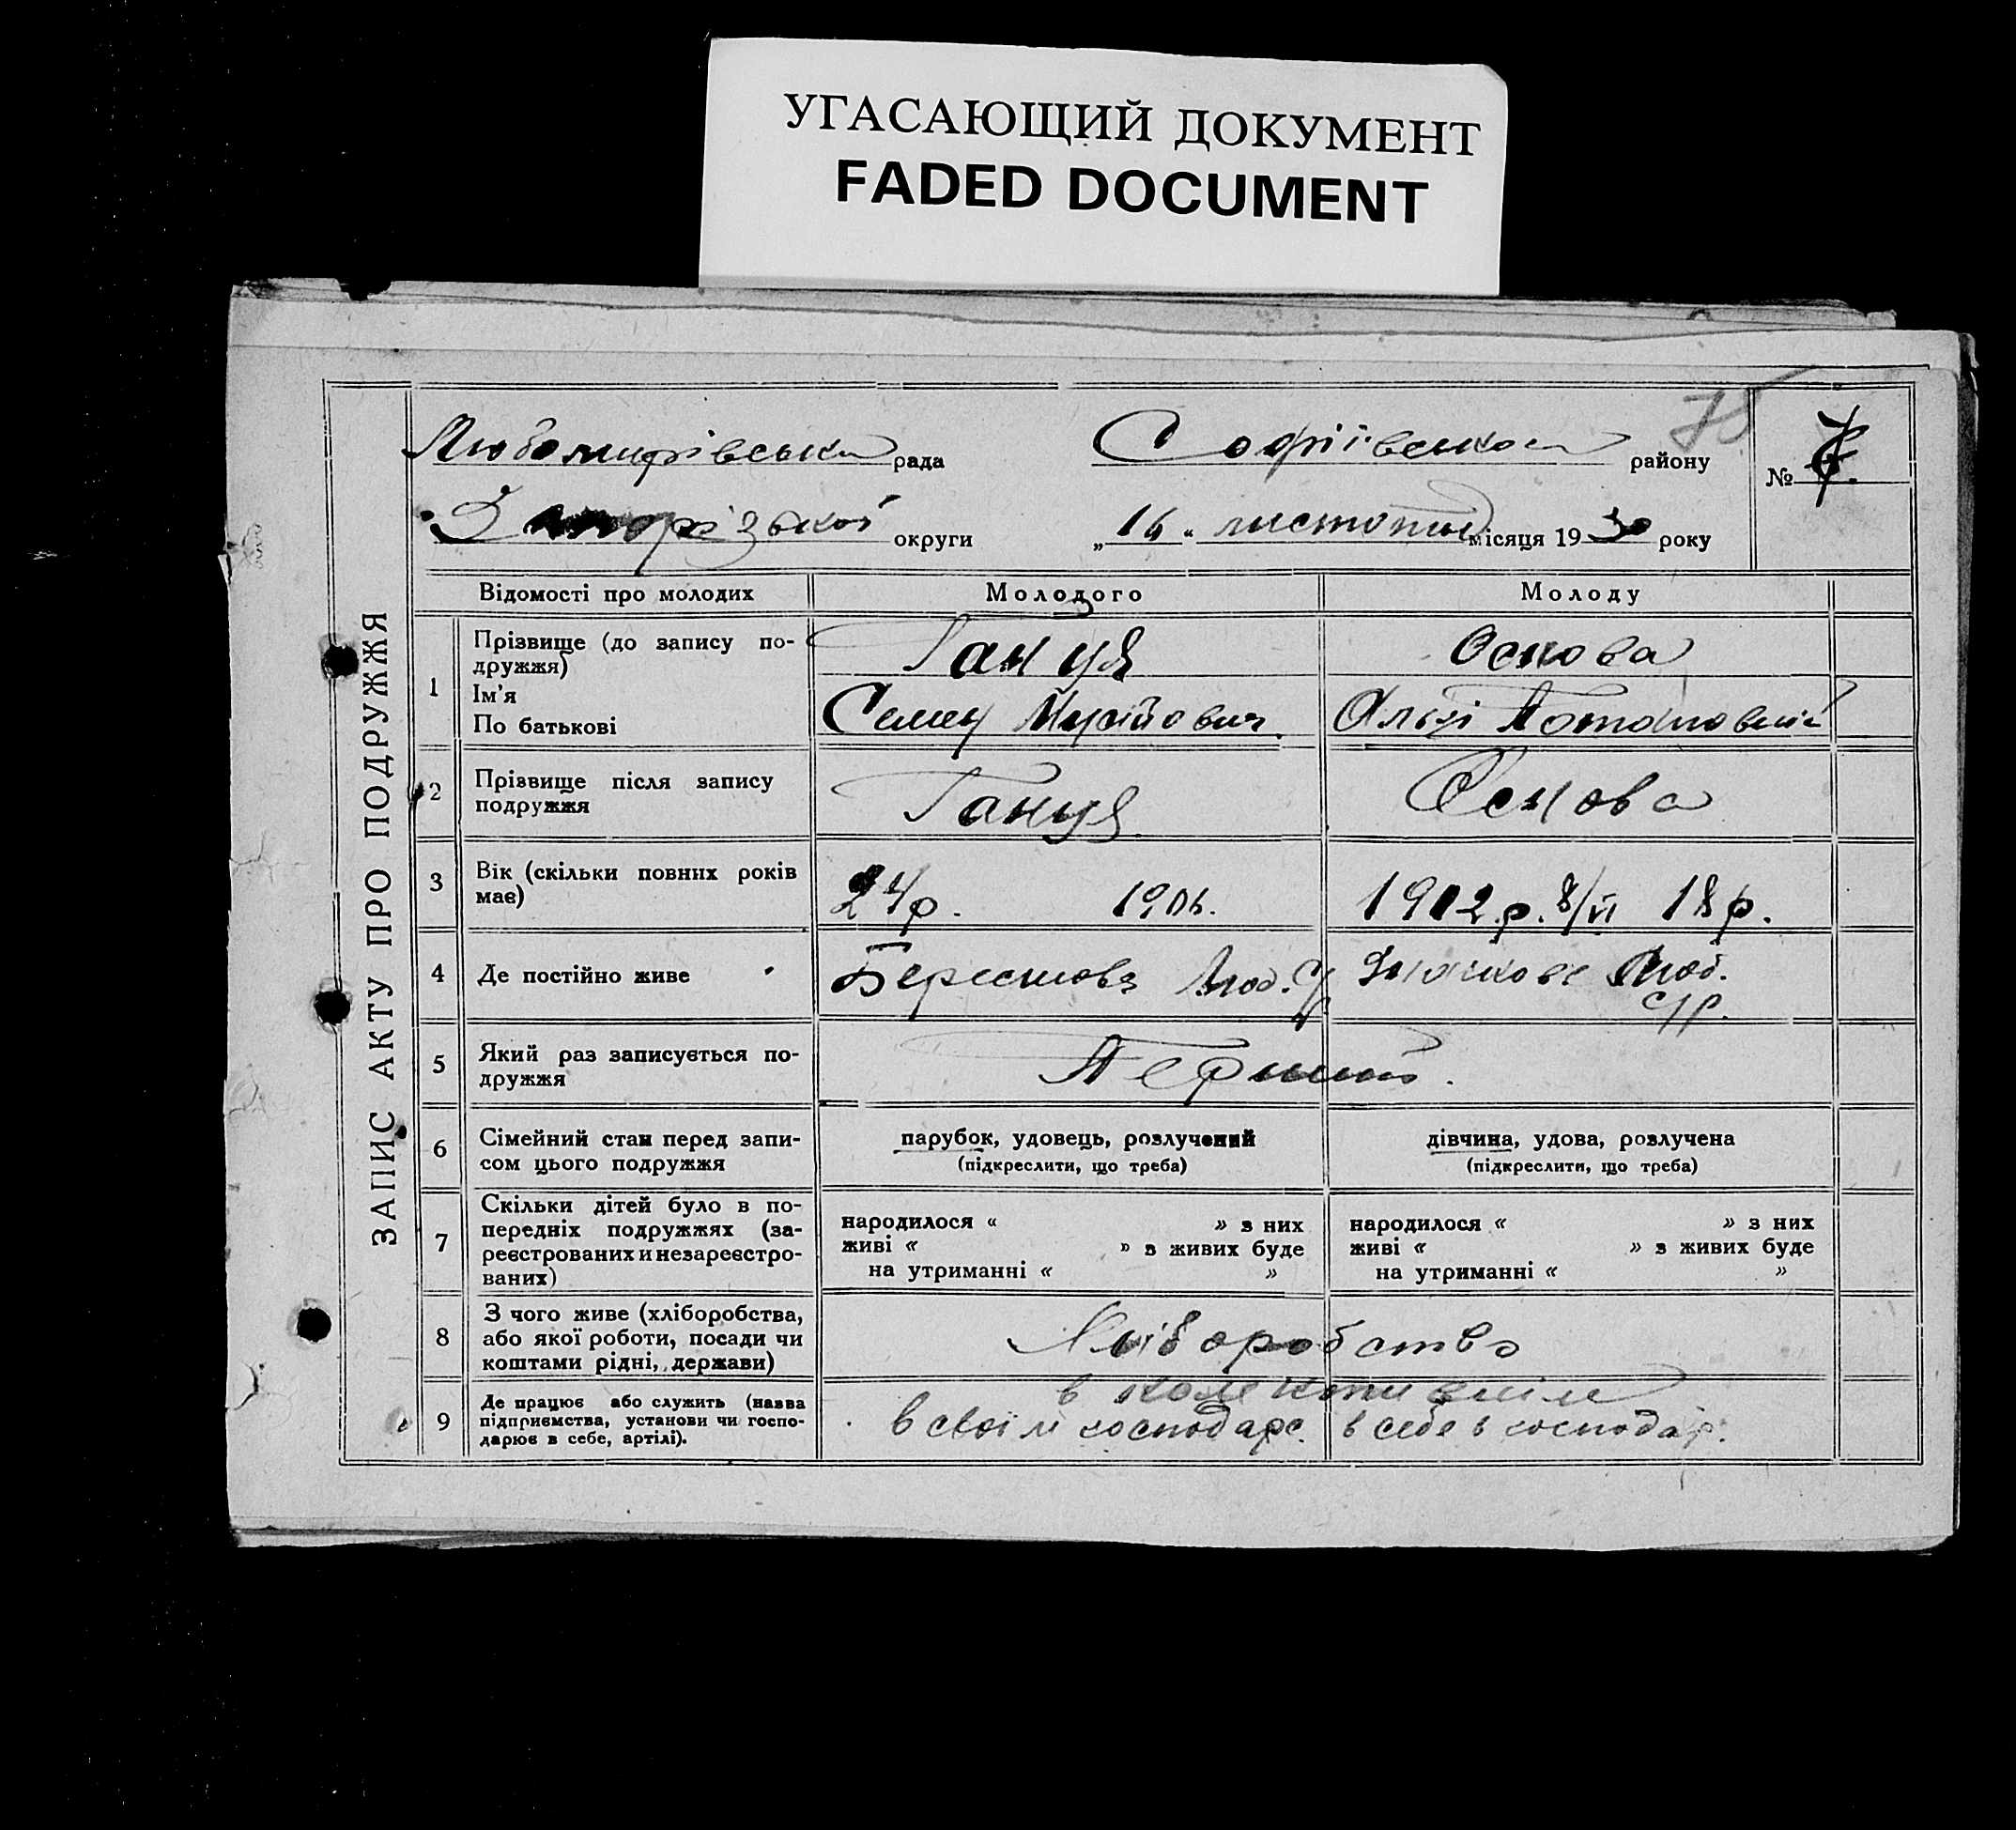 УГАСАЮЩИЙ ДОКУМЕНТ
FADED DOCUMENT
ЗАПИС АКТУ ПРО ПОДРУЖЖЯ
Любомирівська рада Софіївського району № 7.
75
Запорізької округи „16“ листопад місяця 1930 року
Відомості про молодих Молодого Молоду
1 Прізвище (до запису по-
дружжя)
Ім'я
По батькові
Гануя Основа
Семен Мусійович. Ользі Потаповній
2 Прізвище після запису
подружжя
Гануя Основа
3 Вік (скільки повних років
має)
24 р. 1906. 1912 р. 8/VI 18 р.
4 Де постійно живе
Берестова Люб. с/ Люб.
с/р.
5 Який раз записується по-
дружжя
Перший.
6 Сімейний стан перед запи-
сом цього подружжя
парубок, удовець, розлучений
(підкреслити, що треба)
дівчина, удова, розлучена
(підкреслити, що треба)
7 Скільки дітей було в по-
передніх подружжях (за-
реєстрованих и незареєстро-
ваних)
народилося « » з них
живі « » з живих буде
на утриманні « »
народилося « » з них
живі « » з живих буде
на утриманні « »
8 З чого живе (хліборобства,
або якої роботи, посади чи
коштами рідні, держави)
Хліборобство
9 Де працює або служить (назва
підприємства, установи чи госпо-
дарює в себе, артілі).
в колективнім
в своїм господарс. в себе в господар.